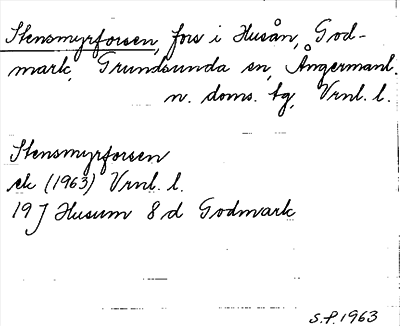 Stensmyrforsen, fors i Husån, God-
mark, Grundsunda sn, Ångermanl.
n. doms. tg, Vrnl. l.
Stensmyrforsen
ek (1963) Vrnl. l.
19J Husum 8 d Godmark
S.P. 1963